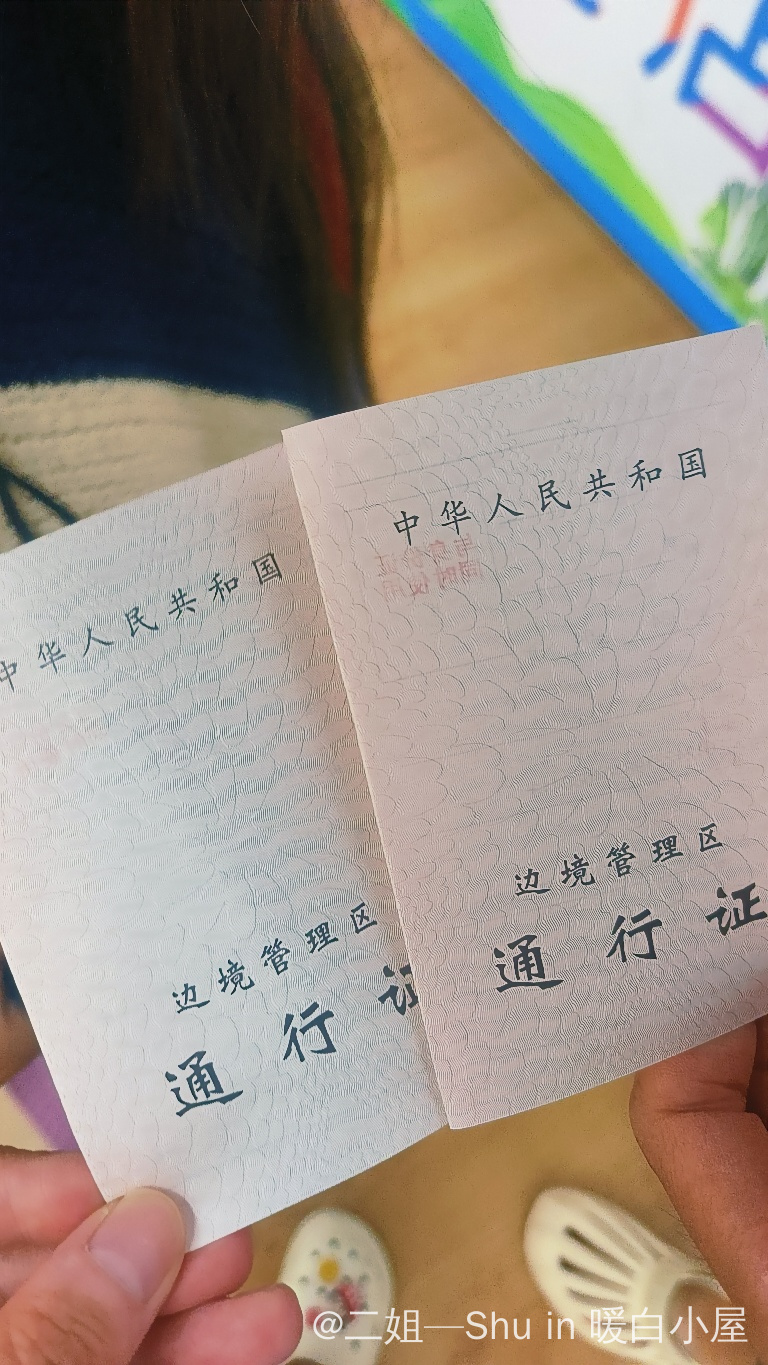 中华人民共和国
边境管理区
通行证
中华人民共和国
与身份证
同时使用
边境管理区
通行证
@二姐—Shu in 暖白小屋